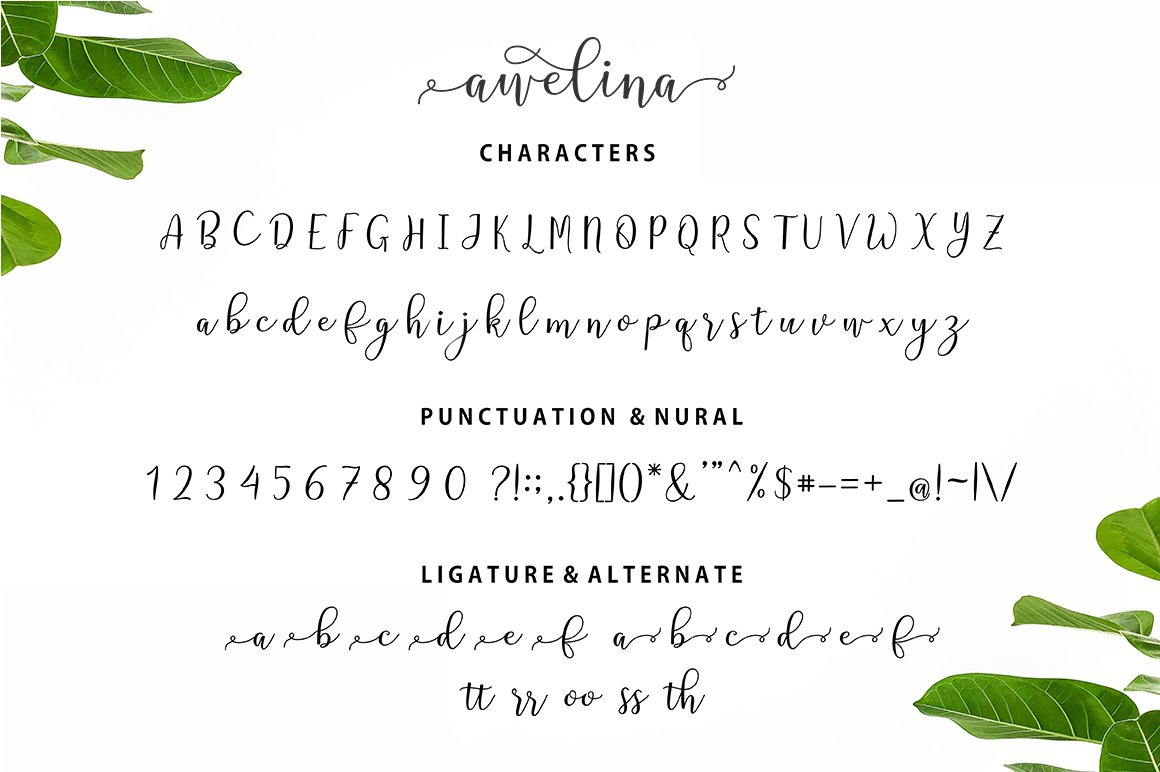 awelina
CHARACTERS
A B C D E F G H I J K L M N O P Q R S T U V W X Y Z
a b c d e f g h i j k l m n o p q r s t u v w x y z
PUNCTUATION & NURAL
1 2 3 4 5 6 7 8 9 0 ?!:;,.{}[]()*&'"^%$#-=+_@!~|\/
LIGATURE & ALTERNATE
a b c d e f a b c d e f
tt rr oo ss th